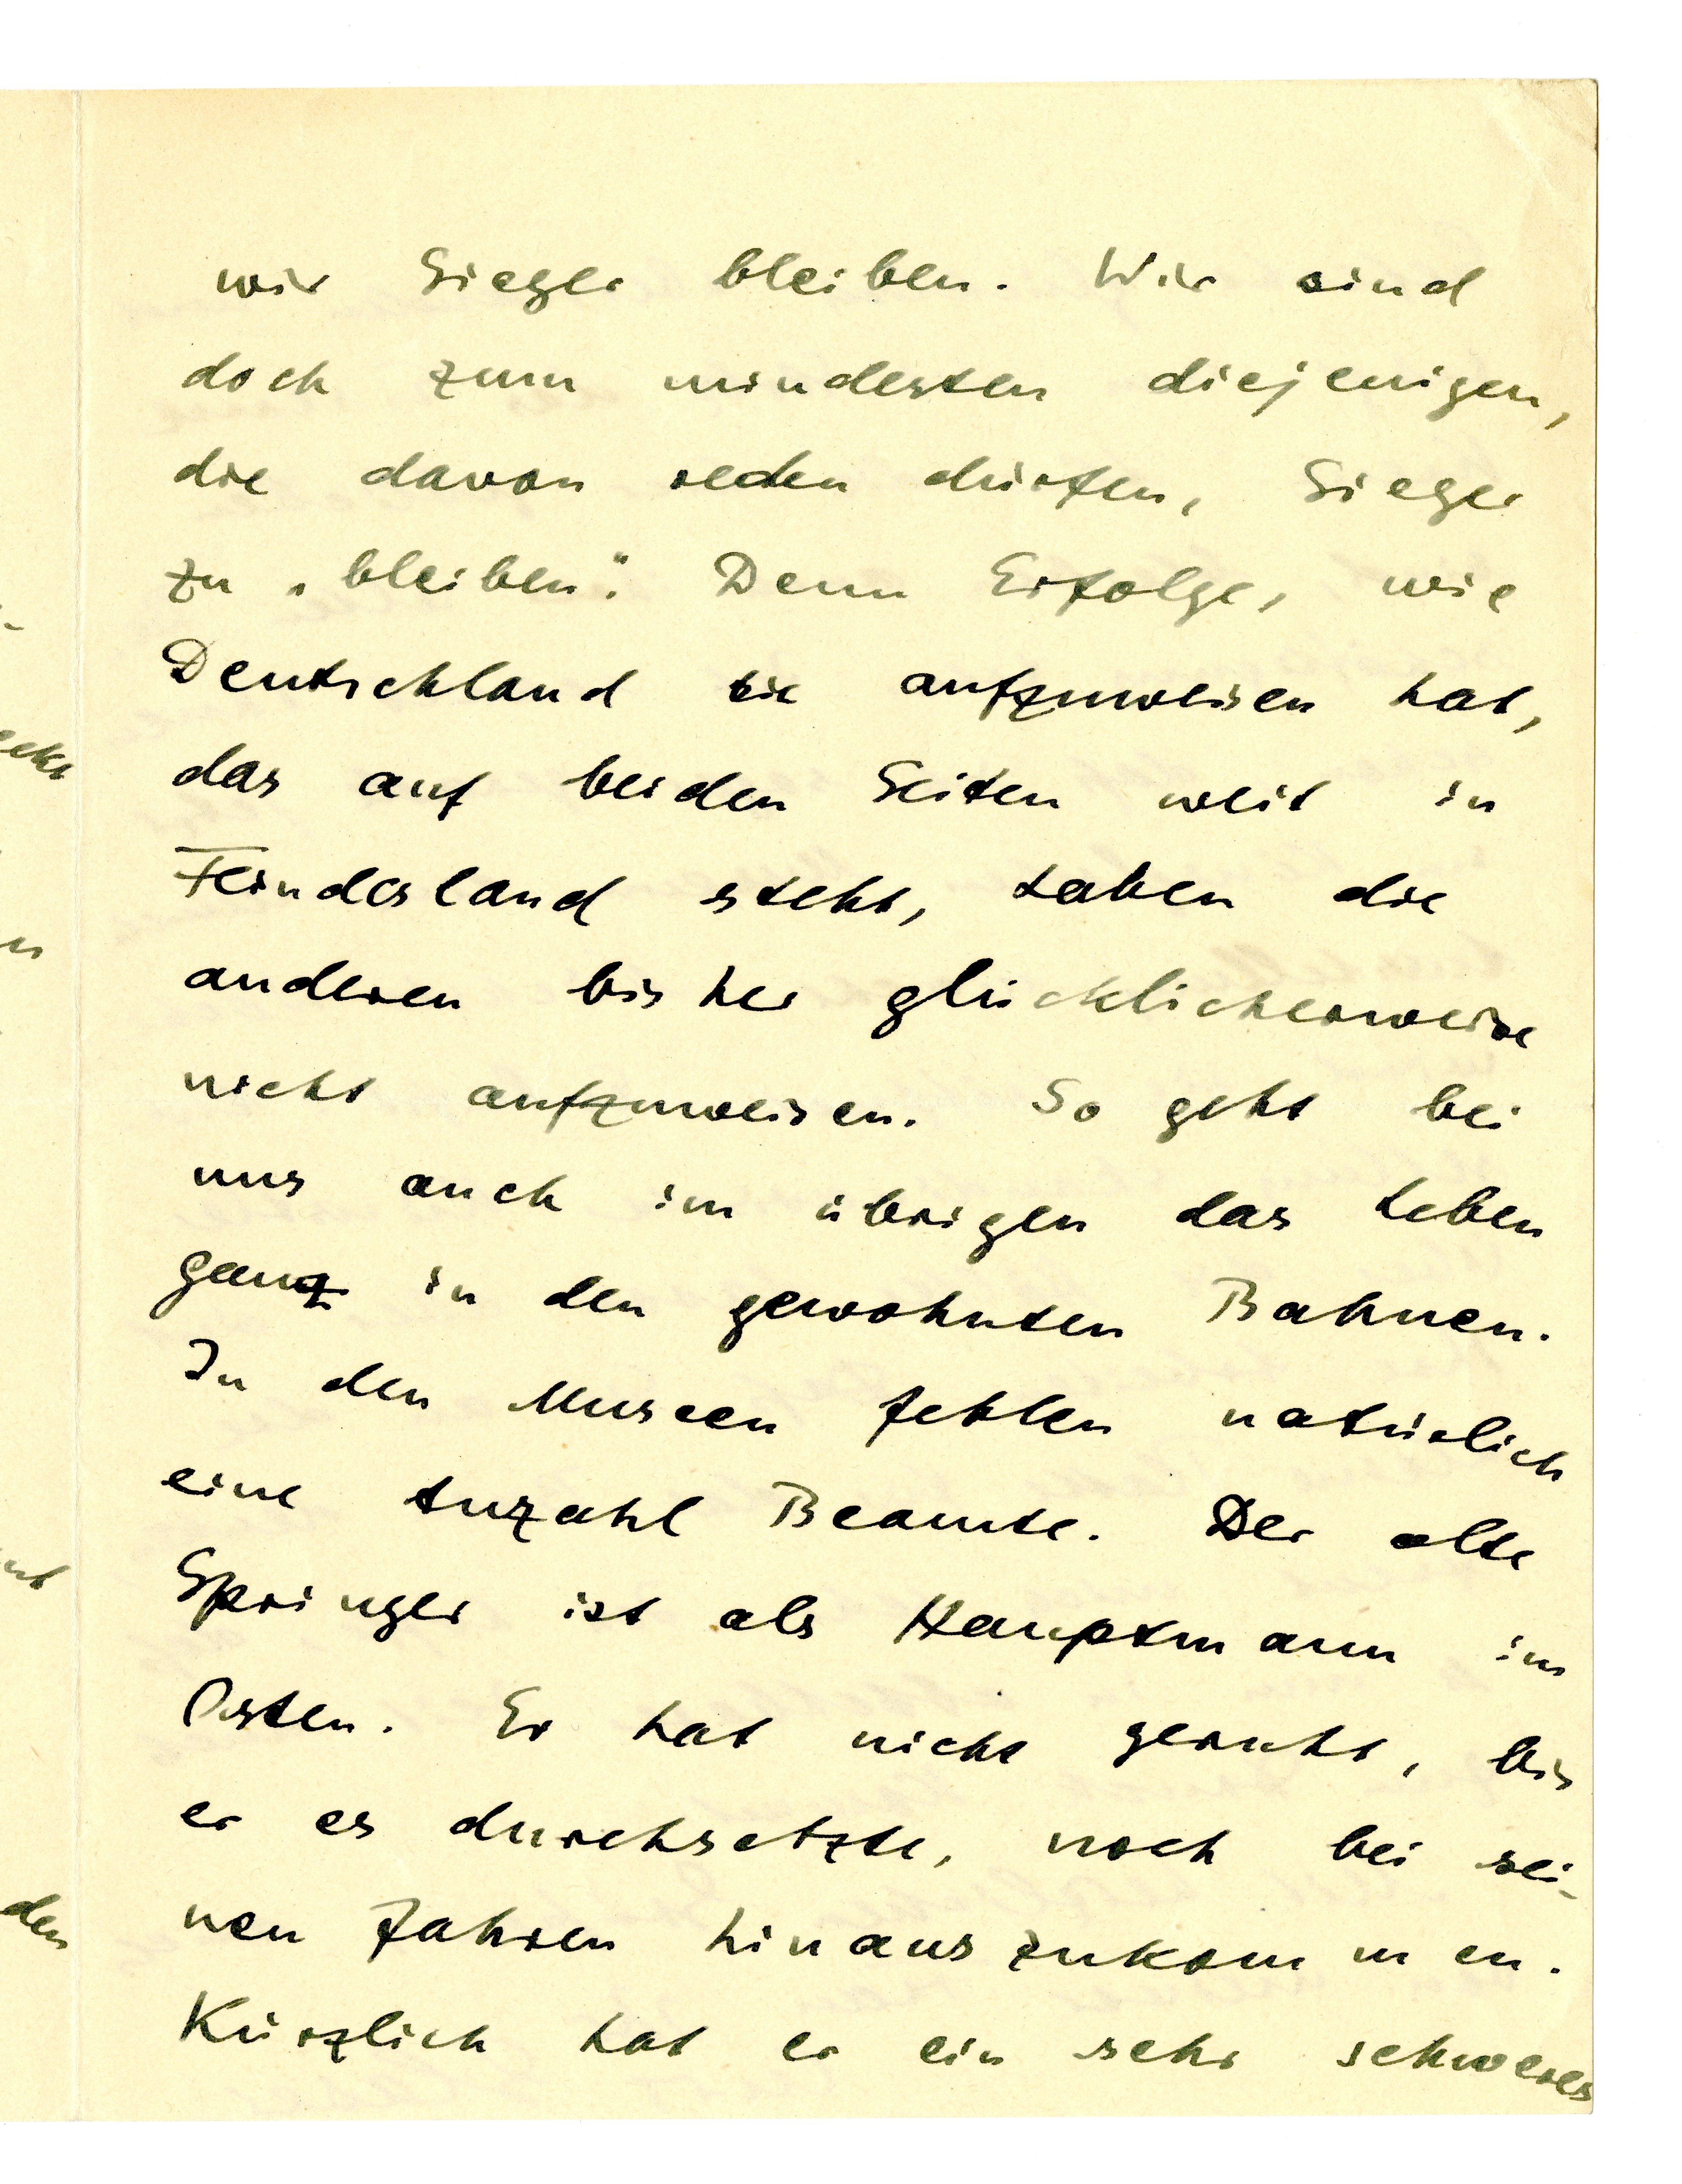 wir Sieger bleiben. Wir sind
doch zum mindesten diejenigen,
die davon reden dürfen, Sieger
zu „bleiben“. Denn Erfolge, wie
Deutschland sie aufzuweisen hat,
das auf beiden Seiten weit in
Feindesland steht, haben die
anderen bisher glücklicherweise
nicht aufzuweisen. So geht bei
uns auch im übrigen das Leben
ganz in den gewohnten Bahnen.
In den Museen fehlen natürlich
eine Anzahl Beamte. Der alte
Springer ist als Hauptmann im
Osten. Er hat nicht geruht, bis
er es durchsetzte, noch bei sei-
nen Jahren hinauszukommen.
Kürzlich hat er ein sehr schweres
den